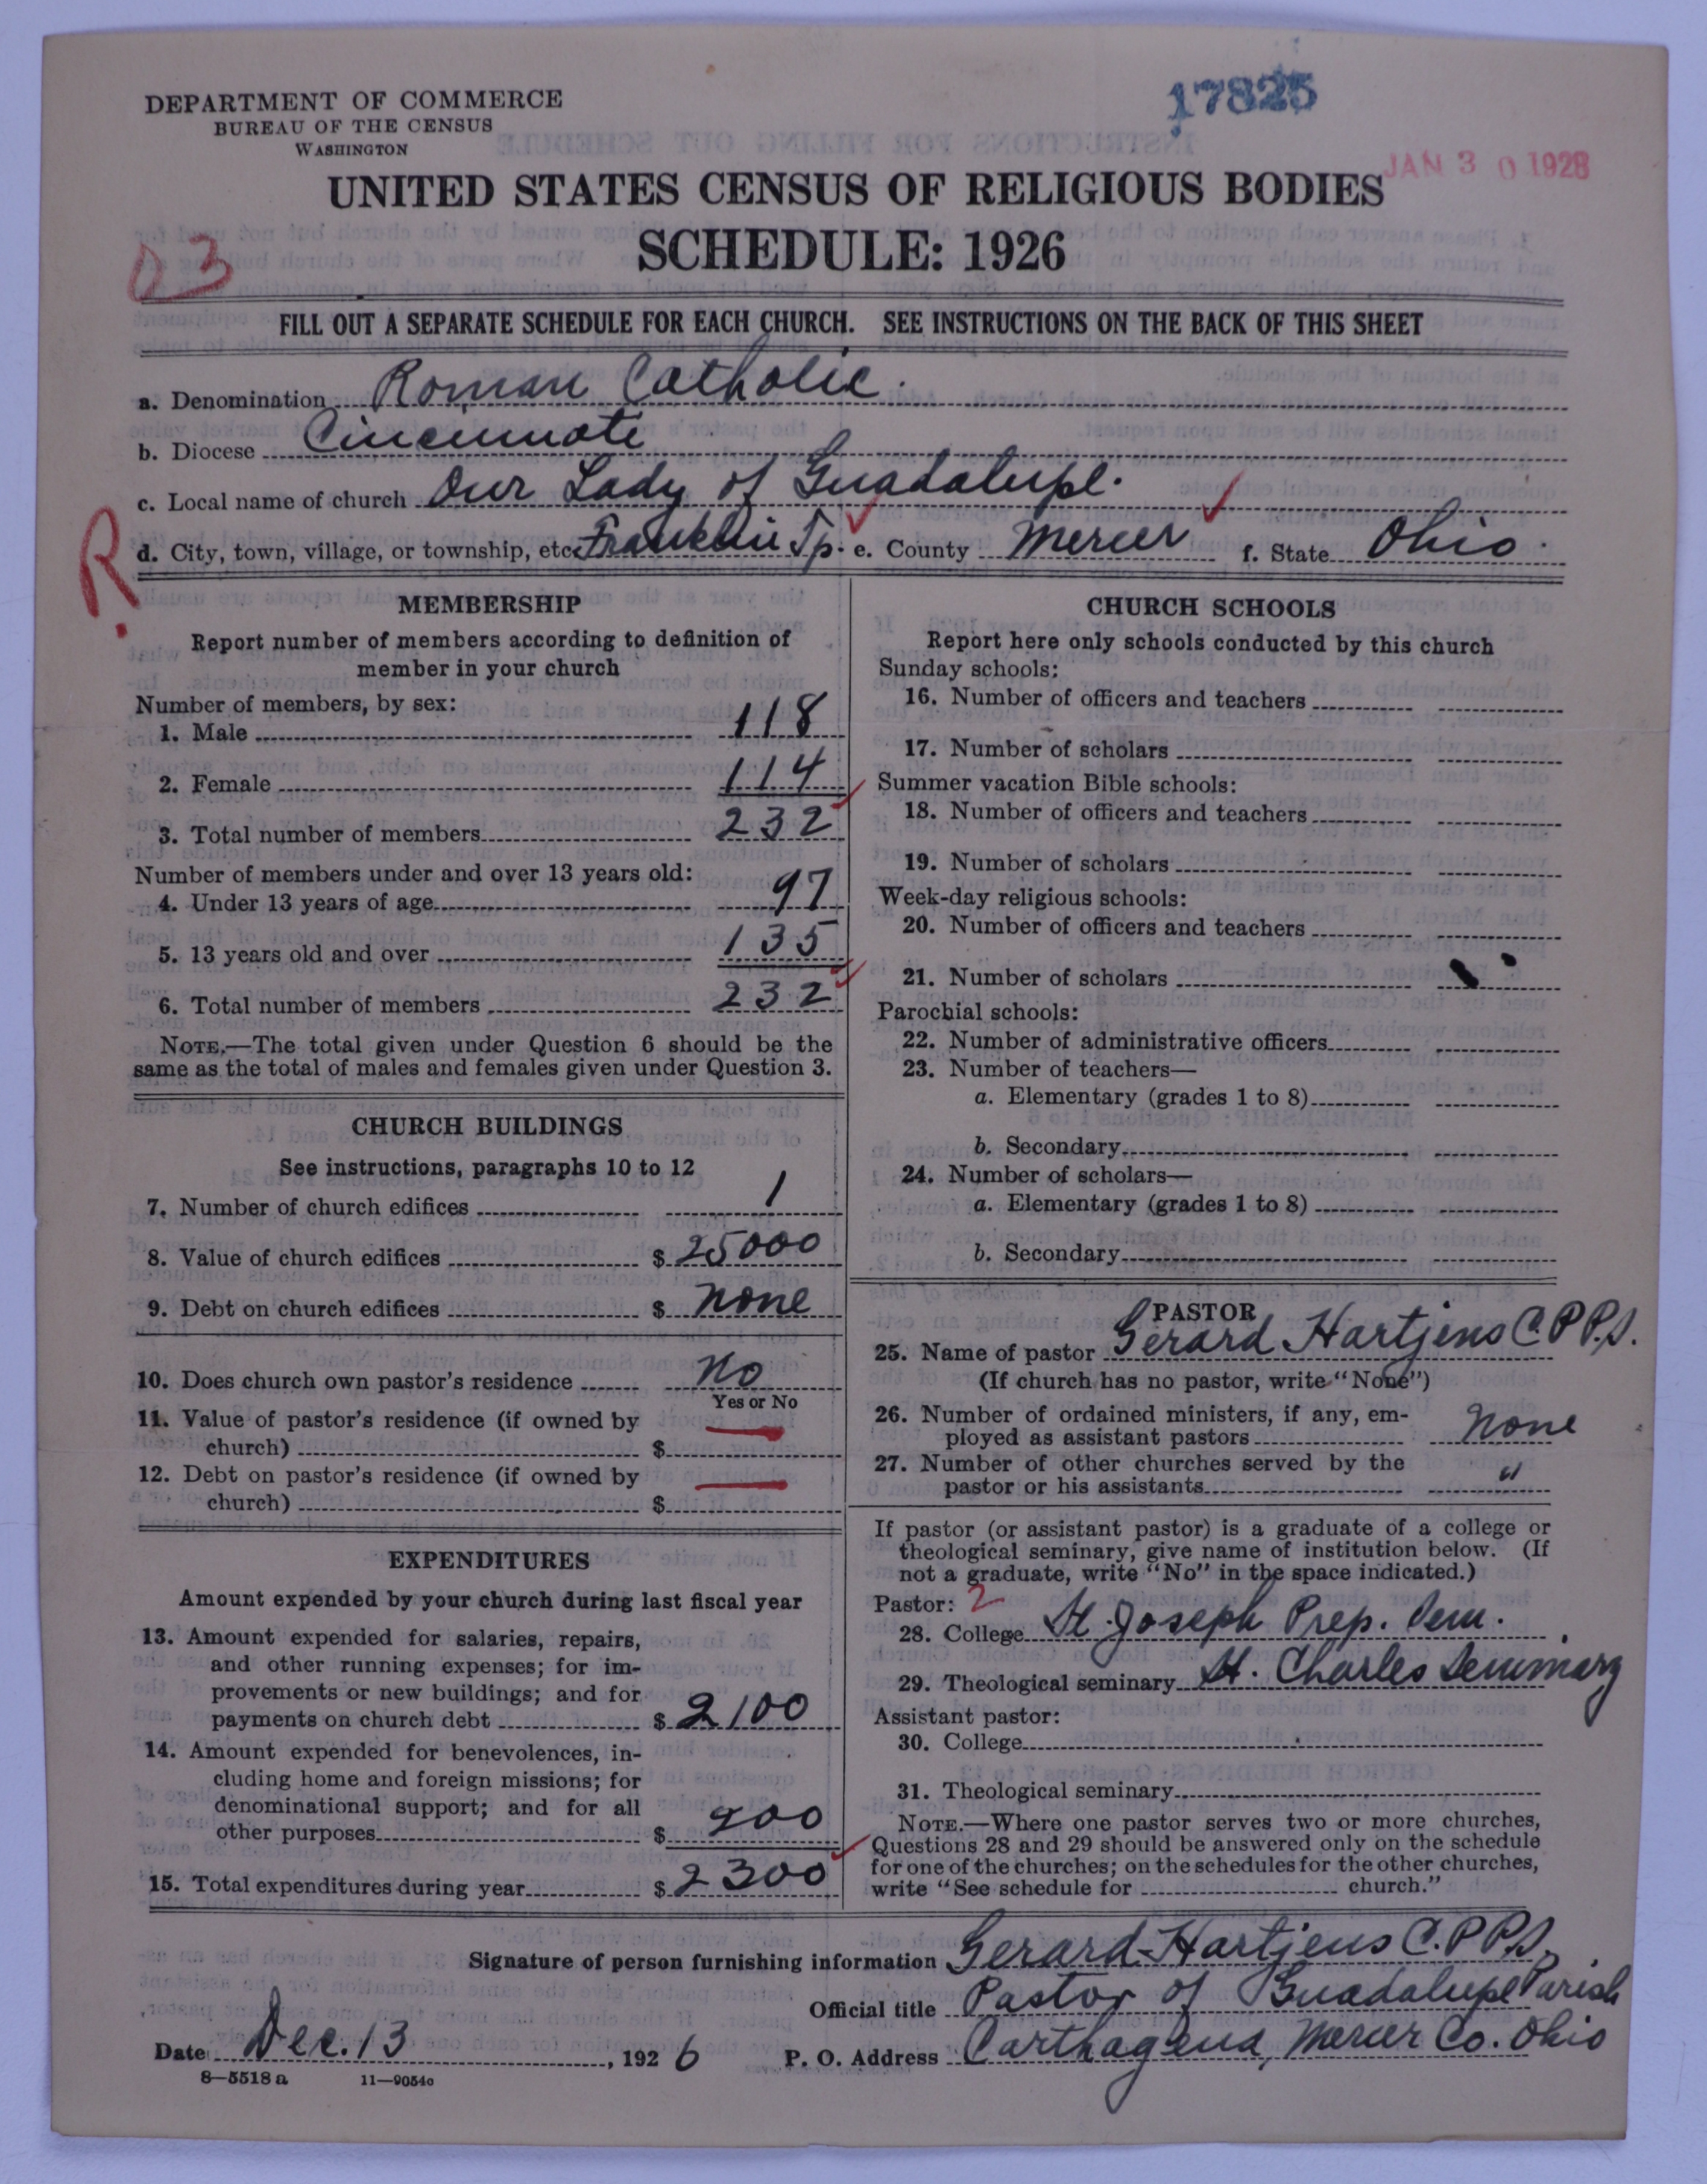 DEPARTMENT OF COMMERCE
BUREAU OF THE CENSUS
WASHINGTON
17825
JAN 30 1928
UNITED STATES CENSUS OF RELIGIOUS BODIES
SCHEDULE: 1926
03
FILL OUT A SEPARATE SCHEDULE FOR EACH CHURCH. SEE INSTRUCTIONS ON THE BACK OF THIS SHEET
a. Denomination Roman Catholic.
b. Diocese Cincinnati
c. Local name of church Our Lady of Guadalupe.
R.
d. City, town, village, or township, etc. Franklin Tp. e. County Mercer f. State Ohio.
MEMBERSHIP
Report number of members according to definition of
member in your church
Number of members, by sex:
1. Male 118
2. Female 114
3. Total number of members 232
Number of members under and over 13 years old:
4. Under 13 years of age 97
5. 13 years old and over 135
6. Total number of members 232
NOTE.—The total given under Question 6 should be the
same as the total of males and females given under Question 3.
CHURCH BUILDINGS
See instructions, paragraphs 10 to 12
7. Number of church edifices 1
8. Value of church edifices $ 25000
9. Debt on church edifices $ None
10. Does church own pastor's residence No
Yes or No
11. Value of pastor's residence (if owned by
church) $
12. Debt on pastor's residence (if owned by
church) $
EXPENDITURES
Amount expended by your church during last fiscal year
13. Amount expended for salaries, repairs,
and other running expenses; for im-
provements or new buildings; and for
payments on church debt $ 2100
14. Amount expended for benevolences, in-
cluding home and foreign missions; for
denominational support; and for all
other purposes $ 200
15. Total expenditures during year $ 2300
CHURCH SCHOOLS
Report here only schools conducted by this church
Sunday schools:
16. Number of officers and teachers
17. Number of scholars
Summer vacation Bible schools:
18. Number of officers and teachers
19. Number of scholars
Week-day religious schools:
20. Number of officers and teachers
21. Number of scholars
Parochial schools:
22. Number of administrative officers
23. Number of teachers—
a. Elementary (grades 1 to 8)
b. Secondary
24. Number of scholars—
a. Elementary (grades 1 to 8)
b. Secondary
PASTOR
25. Name of pastor Gerard Hartjens C.PP.S.
(If church has no pastor, write "None")
26. Number of ordained ministers, if any, em-
ployed as assistant pastors None
27. Number of other churches served by the
pastor or his assistants "
If pastor (or assistant pastor) is a graduate of a college or
theological seminary, give name of institution below. (If
not a graduate, write "No" in the space indicated.)
Pastor: 2
28. College St. Joseph Prep. Sem.
29. Theological seminary St. Charles Seminary
Assistant pastor:
30. College
31. Theological seminary
NOTE.—Where one pastor serves two or more churches,
Questions 28 and 29 should be answered only on the schedule
for one of the churches; on the schedules for the other churches,
write "See schedule for church."
Signature of person furnishing information Gerard Hartjens C.PP.S.
Official title Pastor of Guadalupe Parish
Date Dec. 13, 1926 P. O. Address Carthagena, Mercer Co. Ohio
8—5518 a 11—9054o